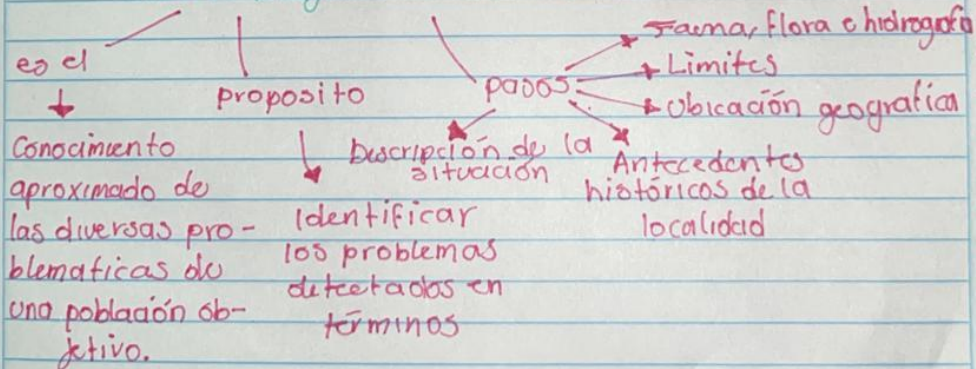 es el
↓
Conocimiento
aproximado de
las diversas pro-
blematicas de
una población ob-
jetivo.
proposito
Identificar
los problemas
detectados en
términos
pasos
Fauna, flora e hidrografi
Limites
Ubicación geografica
Descripción de la
situación
Antecedentes
históricos de la
localidad